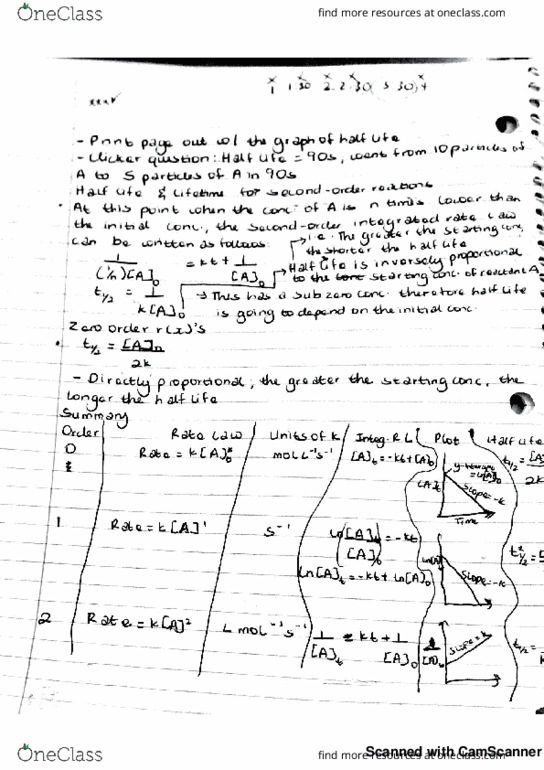 OneClass find more resources at oneclass.com
- Print page out w/ the graph of half life
- Clicker question: Half Life = 90s, went from 10 particles of
A to 5 particles of A in 90s
Half life & lifetime for second-order reactions
• At this point when the conc of A is n times lower than
the initial conc, the second-order integrated rate law
can be written as follows:
i.e. The greater the starting conc,
the shorter the half life
1/(1/n)[A]₀ = kt + 1/[A]₀
Half life is inversely proportional
to the starting conc. of reactant A
t₁/₂ = 1/k[A]₀
→ This has a sub zero conc. therefore half life
is going to depend on the initial conc.
Zero order r(x)'s
• t₁/₂ = [A]₀/2k
- Directly proportional, the greater the starting conc, the
longer the half life
Summary
Order Rate Law Units of k Integ. R L Plot Half Life
0 Rate = k[A]⁰ mol L⁻¹ s⁻¹ [A]t = -kt + [A]₀ [A]t Slope = -k Time t₁/₂ = [A] 2k
1 Rate = k[A]¹ s⁻¹ ln([A]t/[A]₀) = -kt
ln[A]t = -kt + ln[A]₀ ln[A] Slope = -k
2 Rate = k[A]² L mol⁻¹ s⁻¹ 1/[A]t = kt + 1/[A]₀ 1/[A]t Slope = k t₁/₂ =
Scanned with CamScanner
OneClass find more resources at oneclass.com